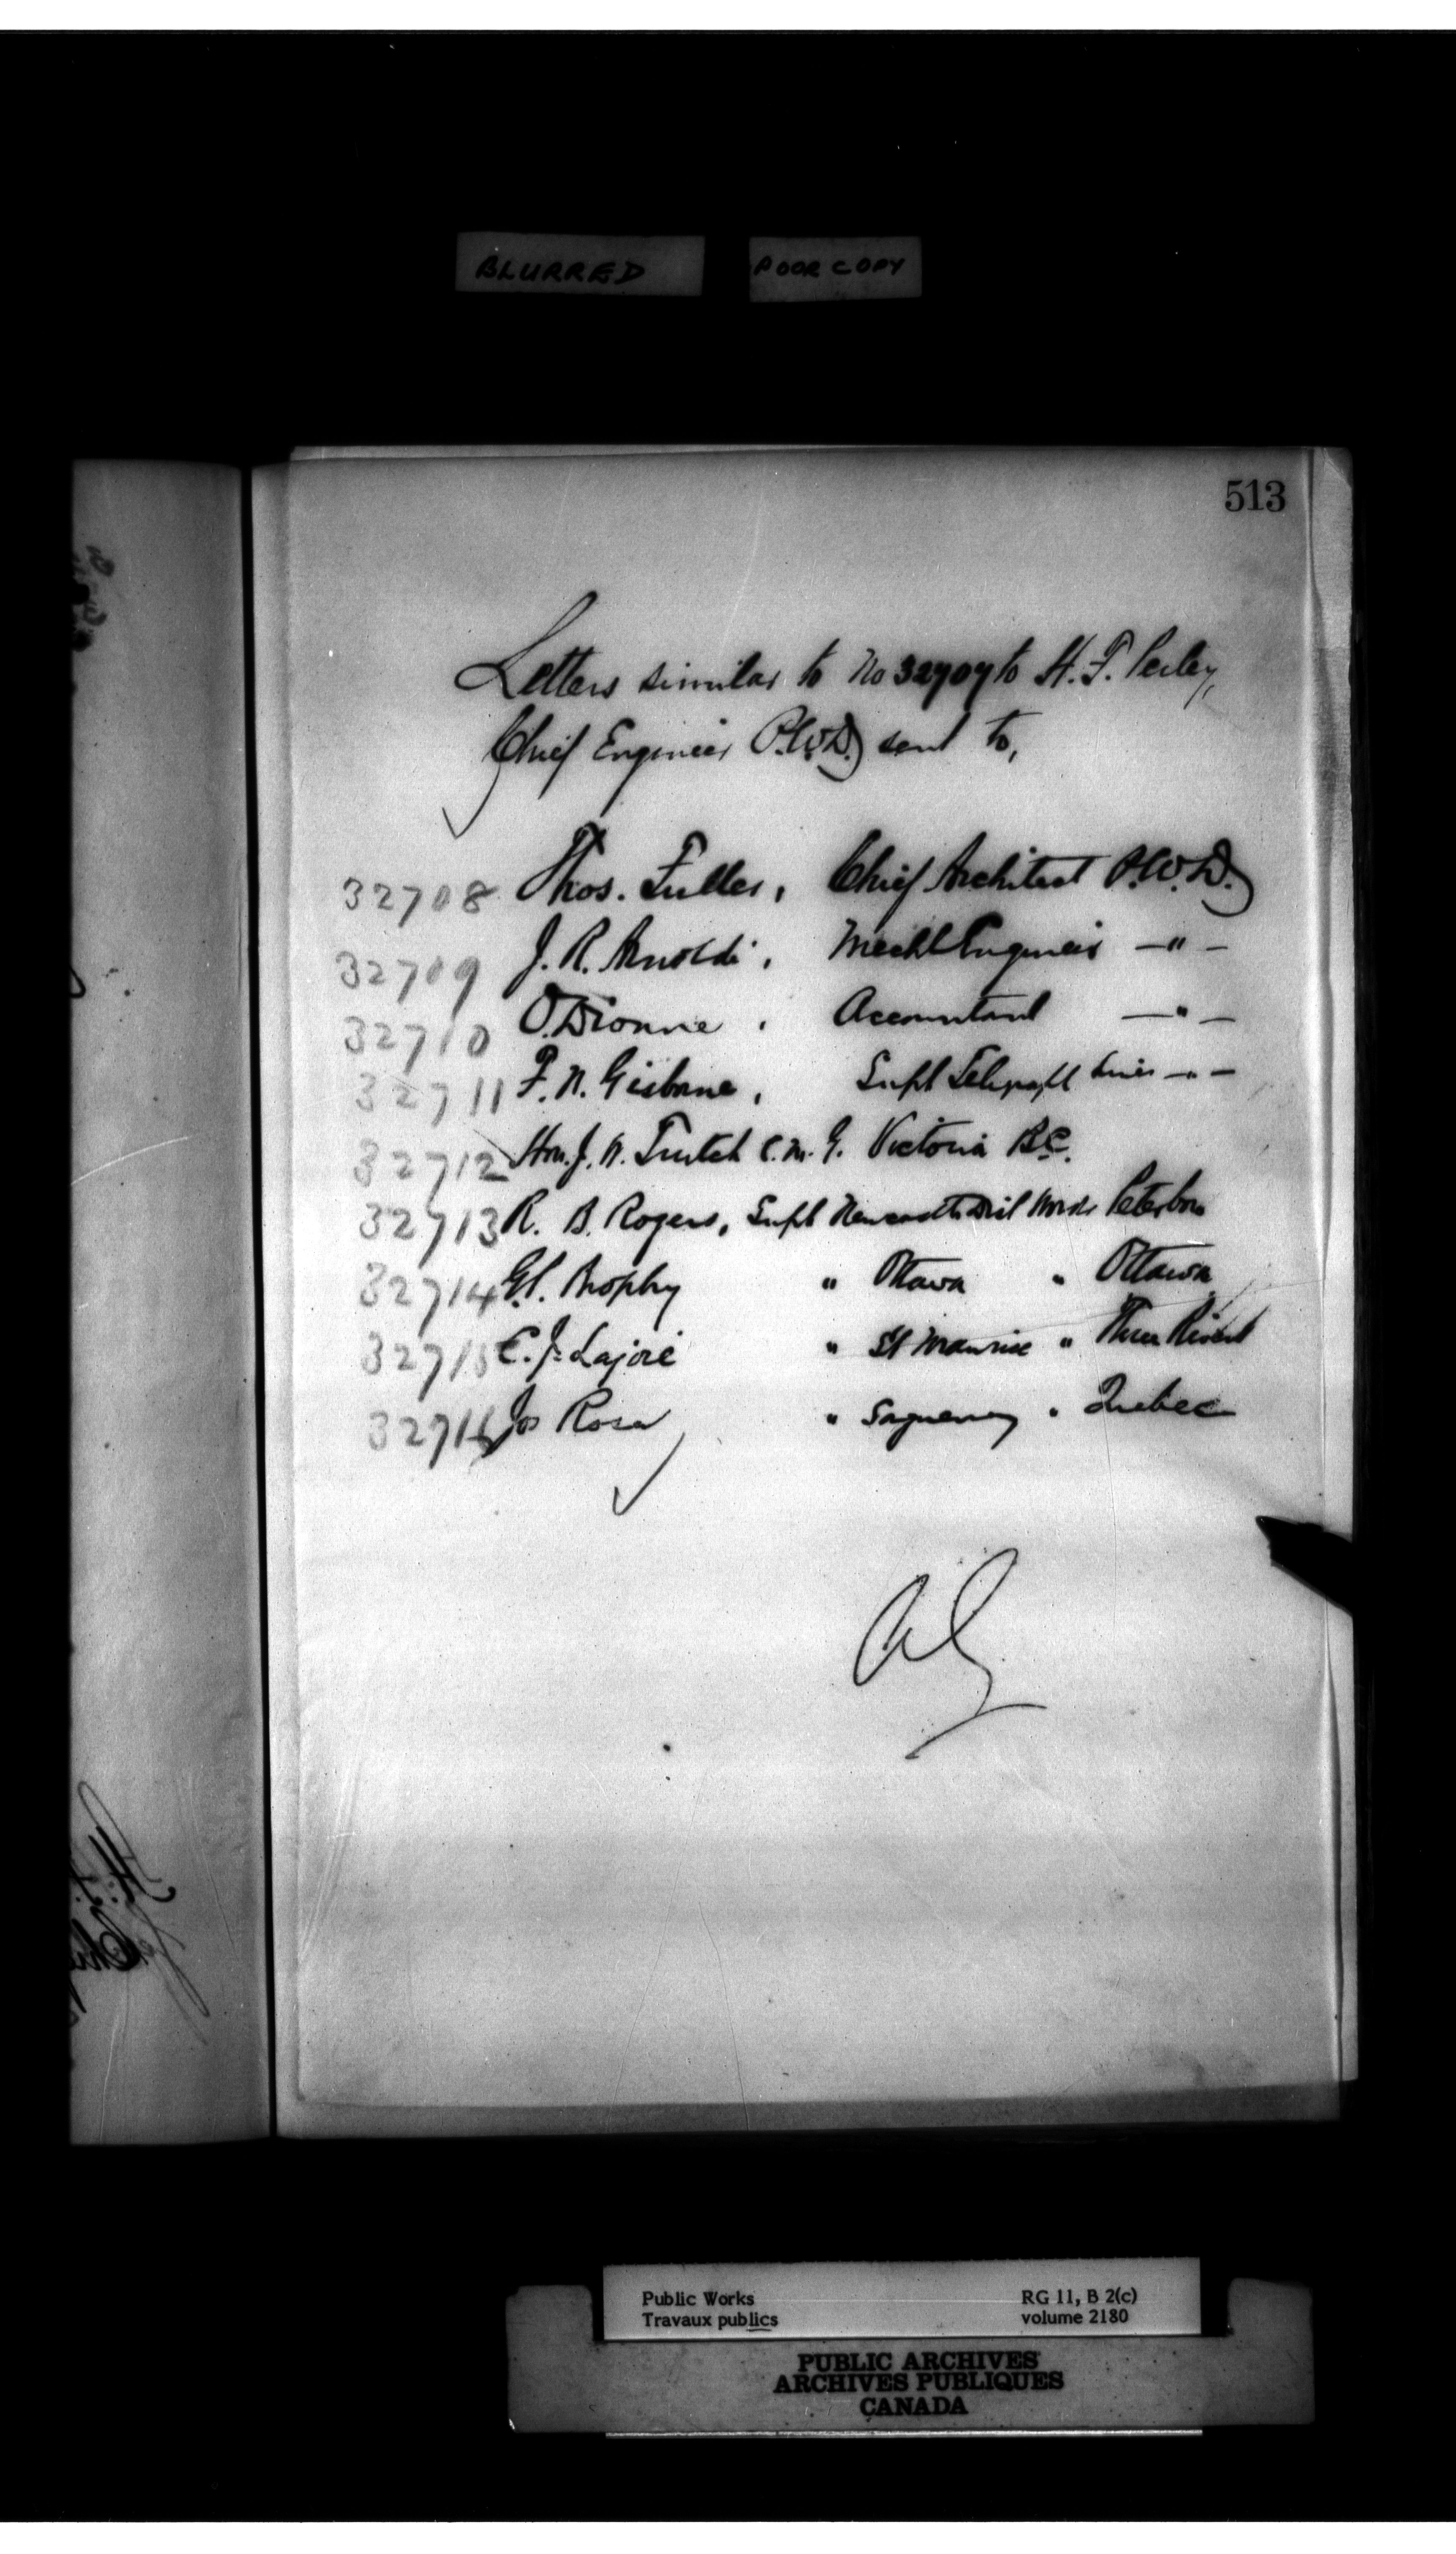 BLURRED POOR COPY
513
Letters similar to No 32707 to H. F. Perley,
Chief Engineer P.W.D. sent to,
32708 Thos. Fuller, Chief Architect P.W.D.
32709 J. R. Arnoldi, Mechl Engineer — " —
32710 O. Dionne, Accountant — " —
32711 F. N. Gisborne, Supt Telegraph Lines — " —
32712 Hon. J. W. Trutch C.M.G. Victoria B.C.
32713 R. B. Rogers, Supt Newcastle Dist Works Peterboro
32714 G.P. Brophy " Ottawa " Ottawa
32715 C. J. Lajoie " St Maurice " Three Rivers
32716 Jos Rosa " Saguenay " Quebec
Public Works RG 11, B 2(c)
Travaux publics volume 2180
PUBLIC ARCHIVES
ARCHIVES PUBLIQUES
CANADA